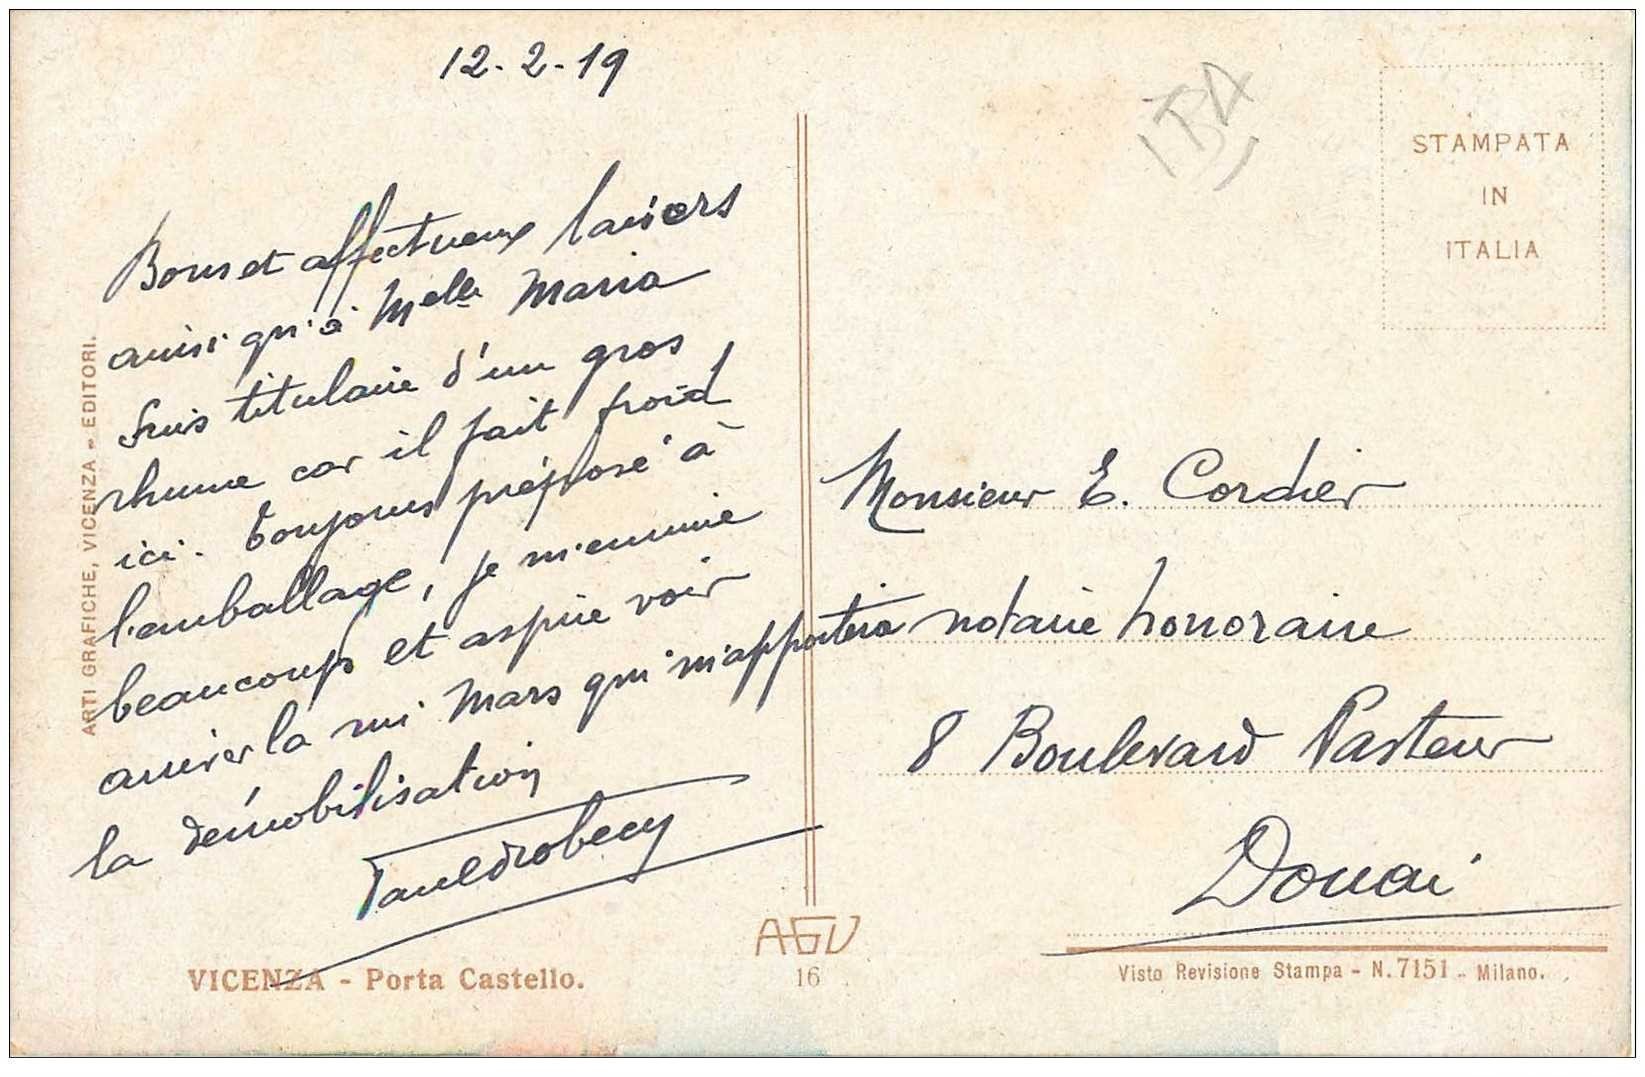 12-2-19
Bons et affectueux baisers
ainsi qu'à Melle Maria
Suis titulaire d'un gros
rhume car il fait froid
ici. Toujours préposé à
l'emballage, je m'ennuie
beaucoup et aspire voir
arriver la mi Mars qui m'apportera
la démobilisation
ARTI GRAFICHE, VICENZA - EDITORI.
VICENZA - Porta Castello.
AGV
16
STAMPATA
IN
ITALIA
Monsieur E. Cordier
notaire honoraire
8 Boulevard Pasteur
Douai
Visto Revisione Stampa - N. 7151 - Milano.